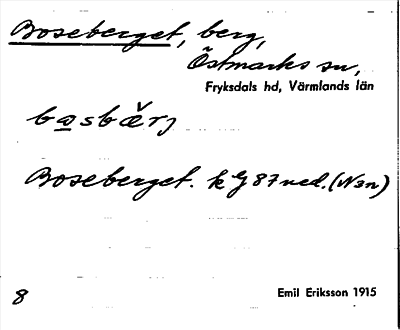 Boseberget, berg,
Östmarks sn,
Fryksdals hd, Värmlands län
Boseberget. k G 87 ned. (N3n)
8
Emil Eriksson 1915